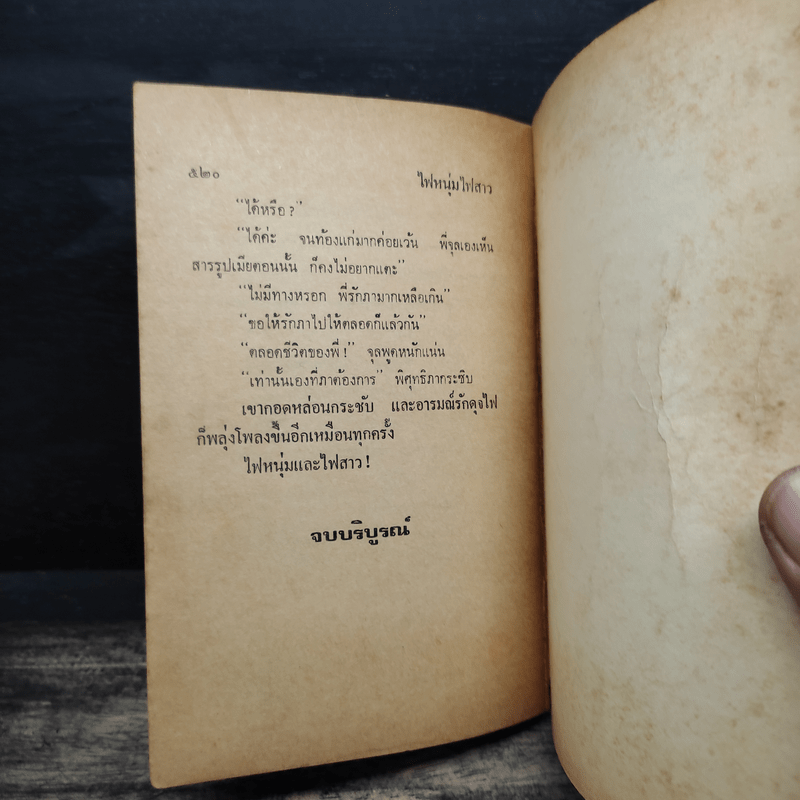 ๕๒๐ ไฟหนุ่มไฟสาว
“ได้หรือ ?”
“ได้ค่ะ จนท้องแก่มากค่อยเว้น พี่จุลเองเห็น
สารรูปเมียตอนนั้น ก็คงไม่อยากแตะ”
“ไม่มีทางหรอก พี่รักภามากเหลือเกิน”
“ขอให้รักภาไปให้ตลอดก็แล้วกัน”
“ตลอดชีวิตของพี่ !” จุลพูดหนักแน่น
“เท่านั้นเองที่ภาต้องการ” พิศุทธิภากระซิบ
เขากอดหล่อนกระชับ และอารมณ์รักดุจไฟ
ก็พลุ่งโพลงขึ้นอีกเหมือนทุกครั้ง
ไฟหนุ่มและไฟสาว !
จบบริบูรณ์